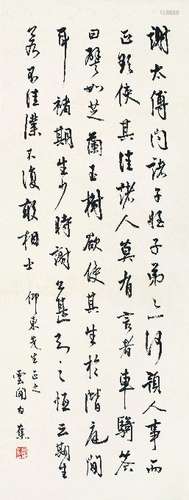 謝太傅問諸子姪子弟亦何預人事而
正欲使其佳諸人莫有言者車騎答
曰譬如芝蘭玉樹欲使其生於階庭間
耳褚期生少時謝公甚知之恒云期生
若不佳僕不復敢相士 仰東先生正之
雲間白蕉